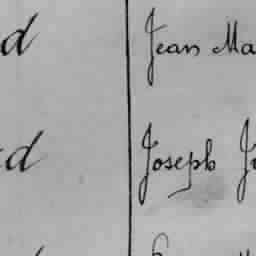 d Jean Ma
d Joseph